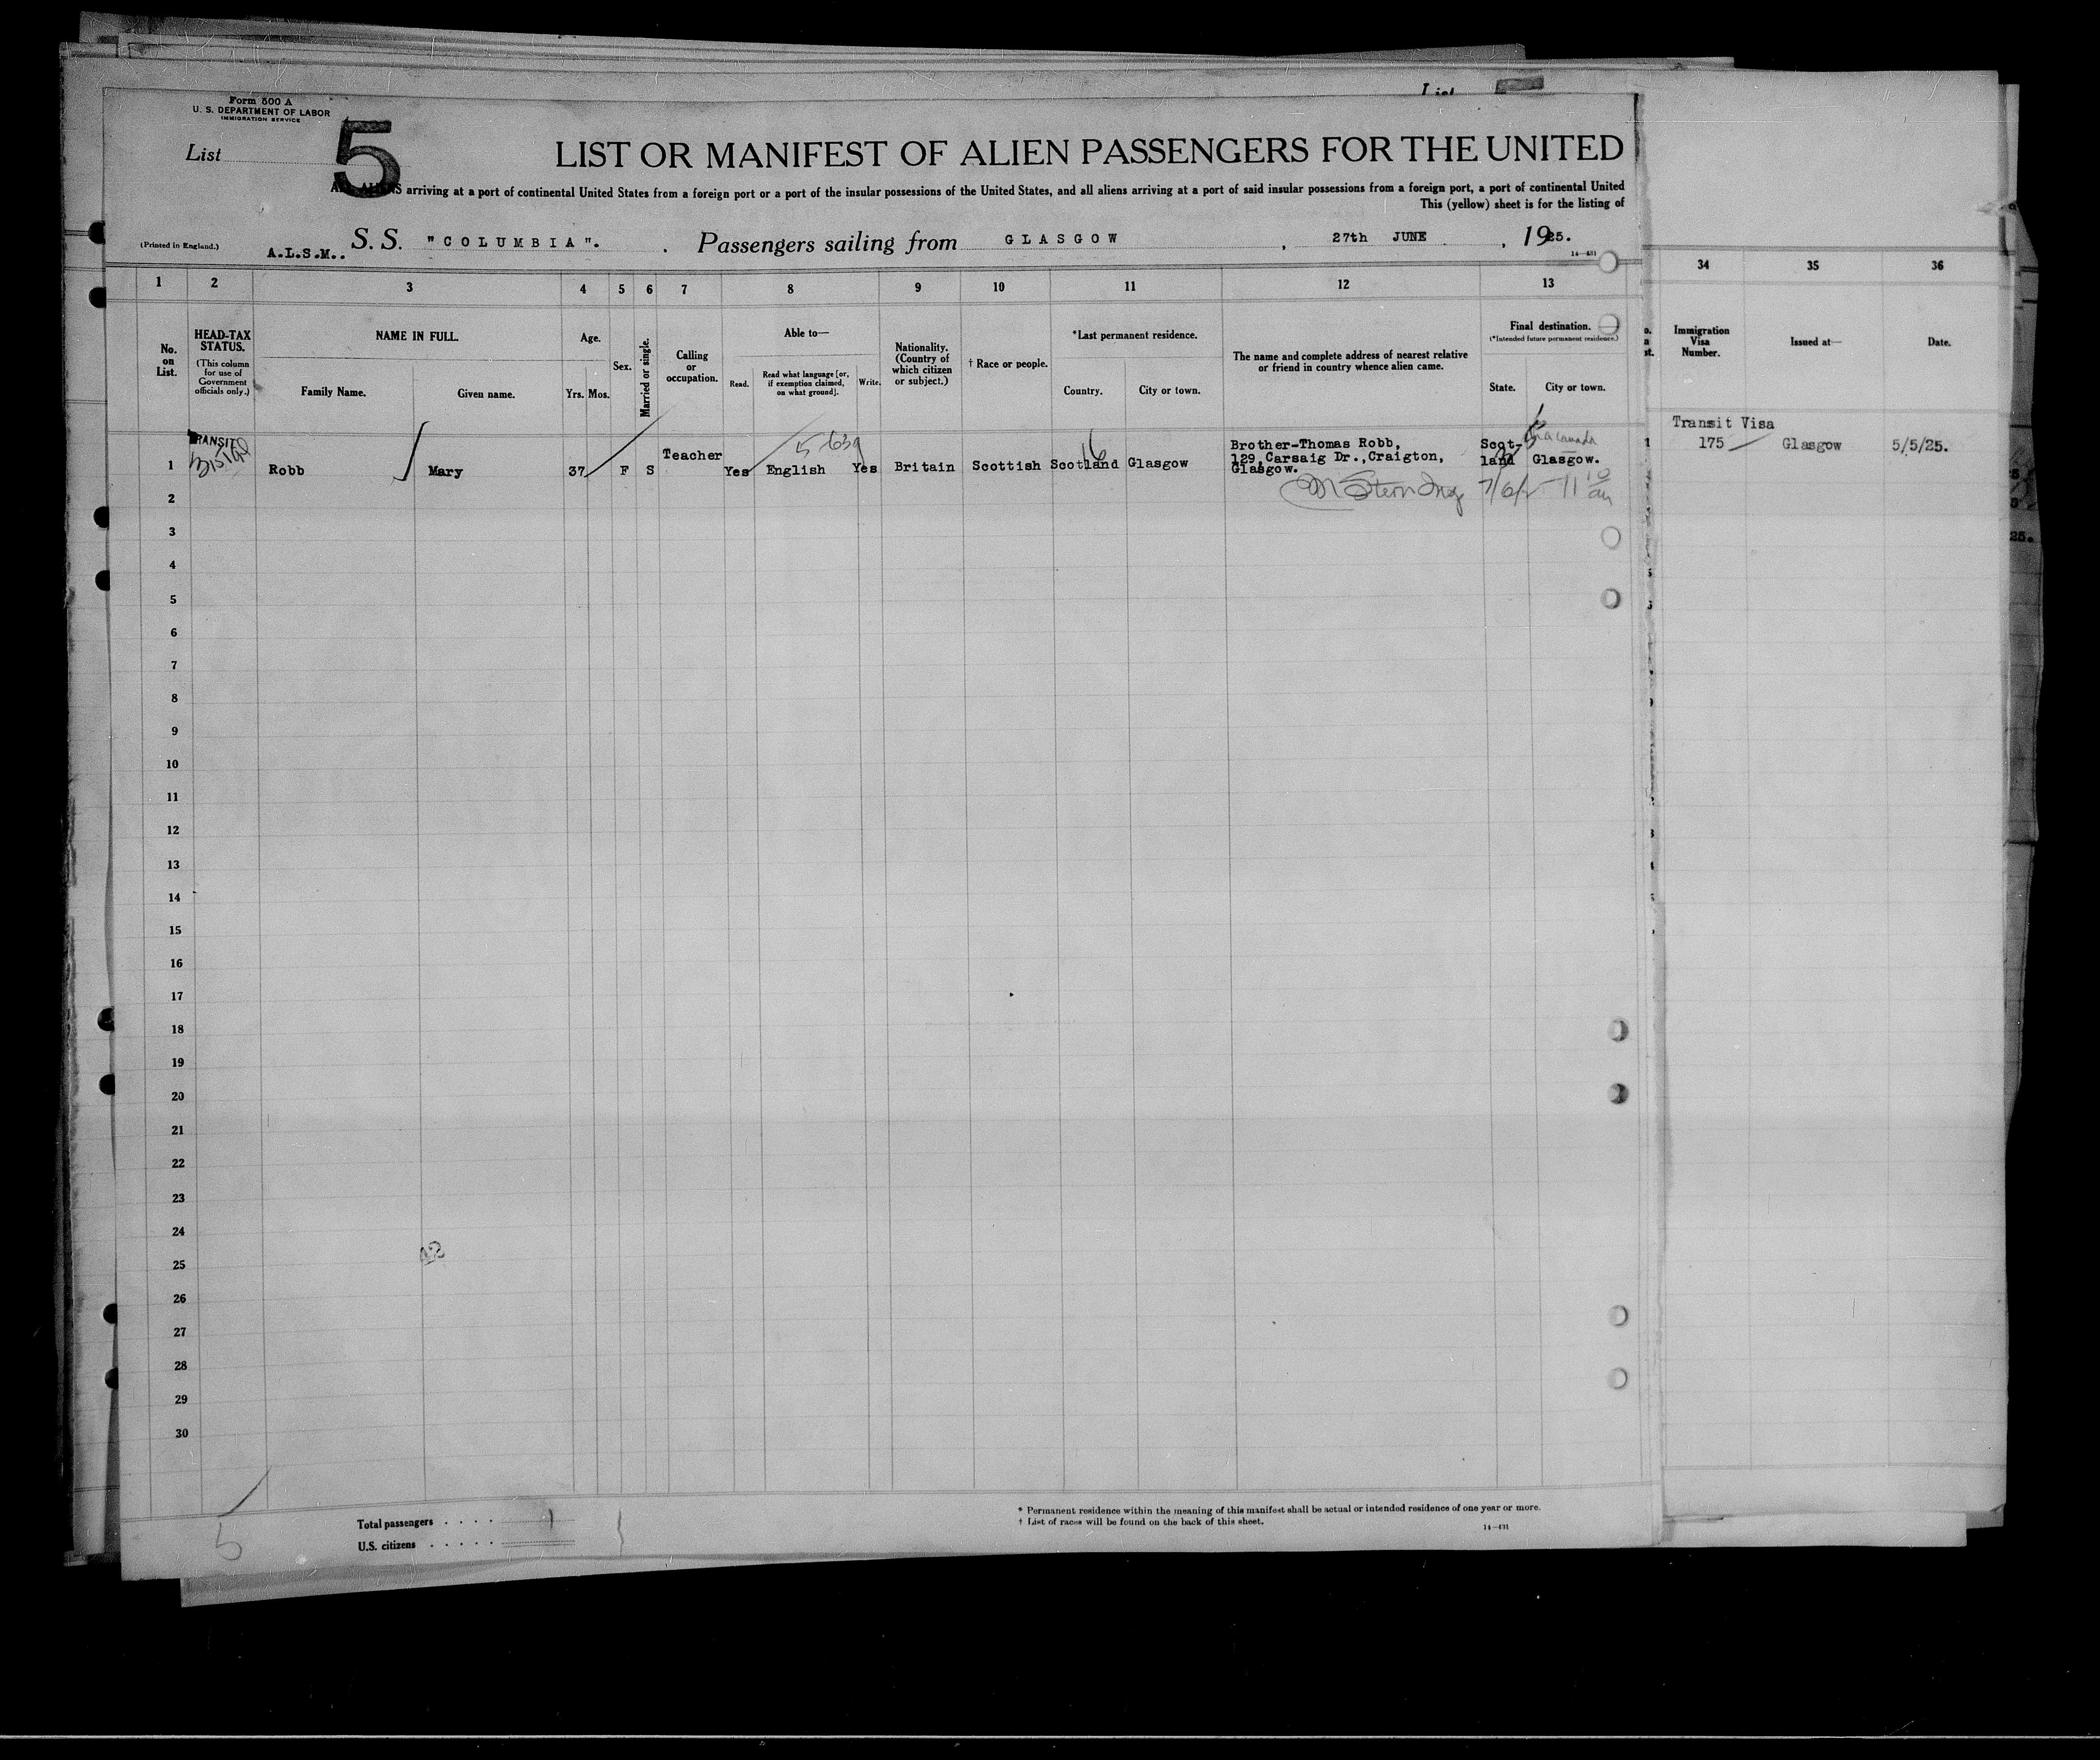 Form 500 A
U. S. DEPARTMENT OF LABOR
IMMIGRATION SERVICE
List
5
List
LIST OR MANIFEST OF ALIEN PASSENGERS FOR THE UNITED
ALL ALIENS arriving at a port of continental United States from a foreign port or a port of the insular possessions of the United States, and all aliens arriving at a port of said insular possessions from a foreign port, a port of continental United
This (yellow) sheet is for the listing of
(Printed in England.)
A.L.S.M..
S. S. "COLUMBIA". . Passengers sailing from GLASGOW , 27th JUNE , 1925.
14—431
1 2 3 4 5 6 7 8 9 10 11 12 13 34 35 36
No. on List.
HEAD-TAX STATUS.
(This column for use of Government officials only.)
NAME IN FULL.
Family Name.
Given name.
Age.
Yrs. Mos.
Sex.
Married or single.
Calling or occupation.
Able to—
Read.
Read what language [or, if exemption claimed, on what ground].
Write.
Nationality. (Country of which citizen or subject.)
† Race or people.
*Last permanent residence.
Country.
City or town.
The name and complete address of nearest relative or friend in country whence alien came.
Final destination.
(*Intended future permanent residence.)
State.
City or town.
Immigration Visa Number.
Issued at—
Date.
TRANSIT
1 Robb Mary 37 F S Teacher Yes English Yes Britain Scottish Scotland Glasgow
Brother-Thomas Robb,
129,Carsaig Dr.,Craigton,
Glasgow.
Scot-
land
via Canada
Glasgow.
Transit Visa
175 Glasgow 5/5/25.
2
3
4
5
6
7
8
9
10
11
12
13
14
15
16
17
18
19
20
21
22
23
24
25
26
27
28
29
30
5
Total passengers . . . . 1
U.S. citizens . . . . .
* Permanent residence within the meaning of this manifest shall be actual or intended residence of one year or more.
† List of races will be found on the back of this sheet.
14—431